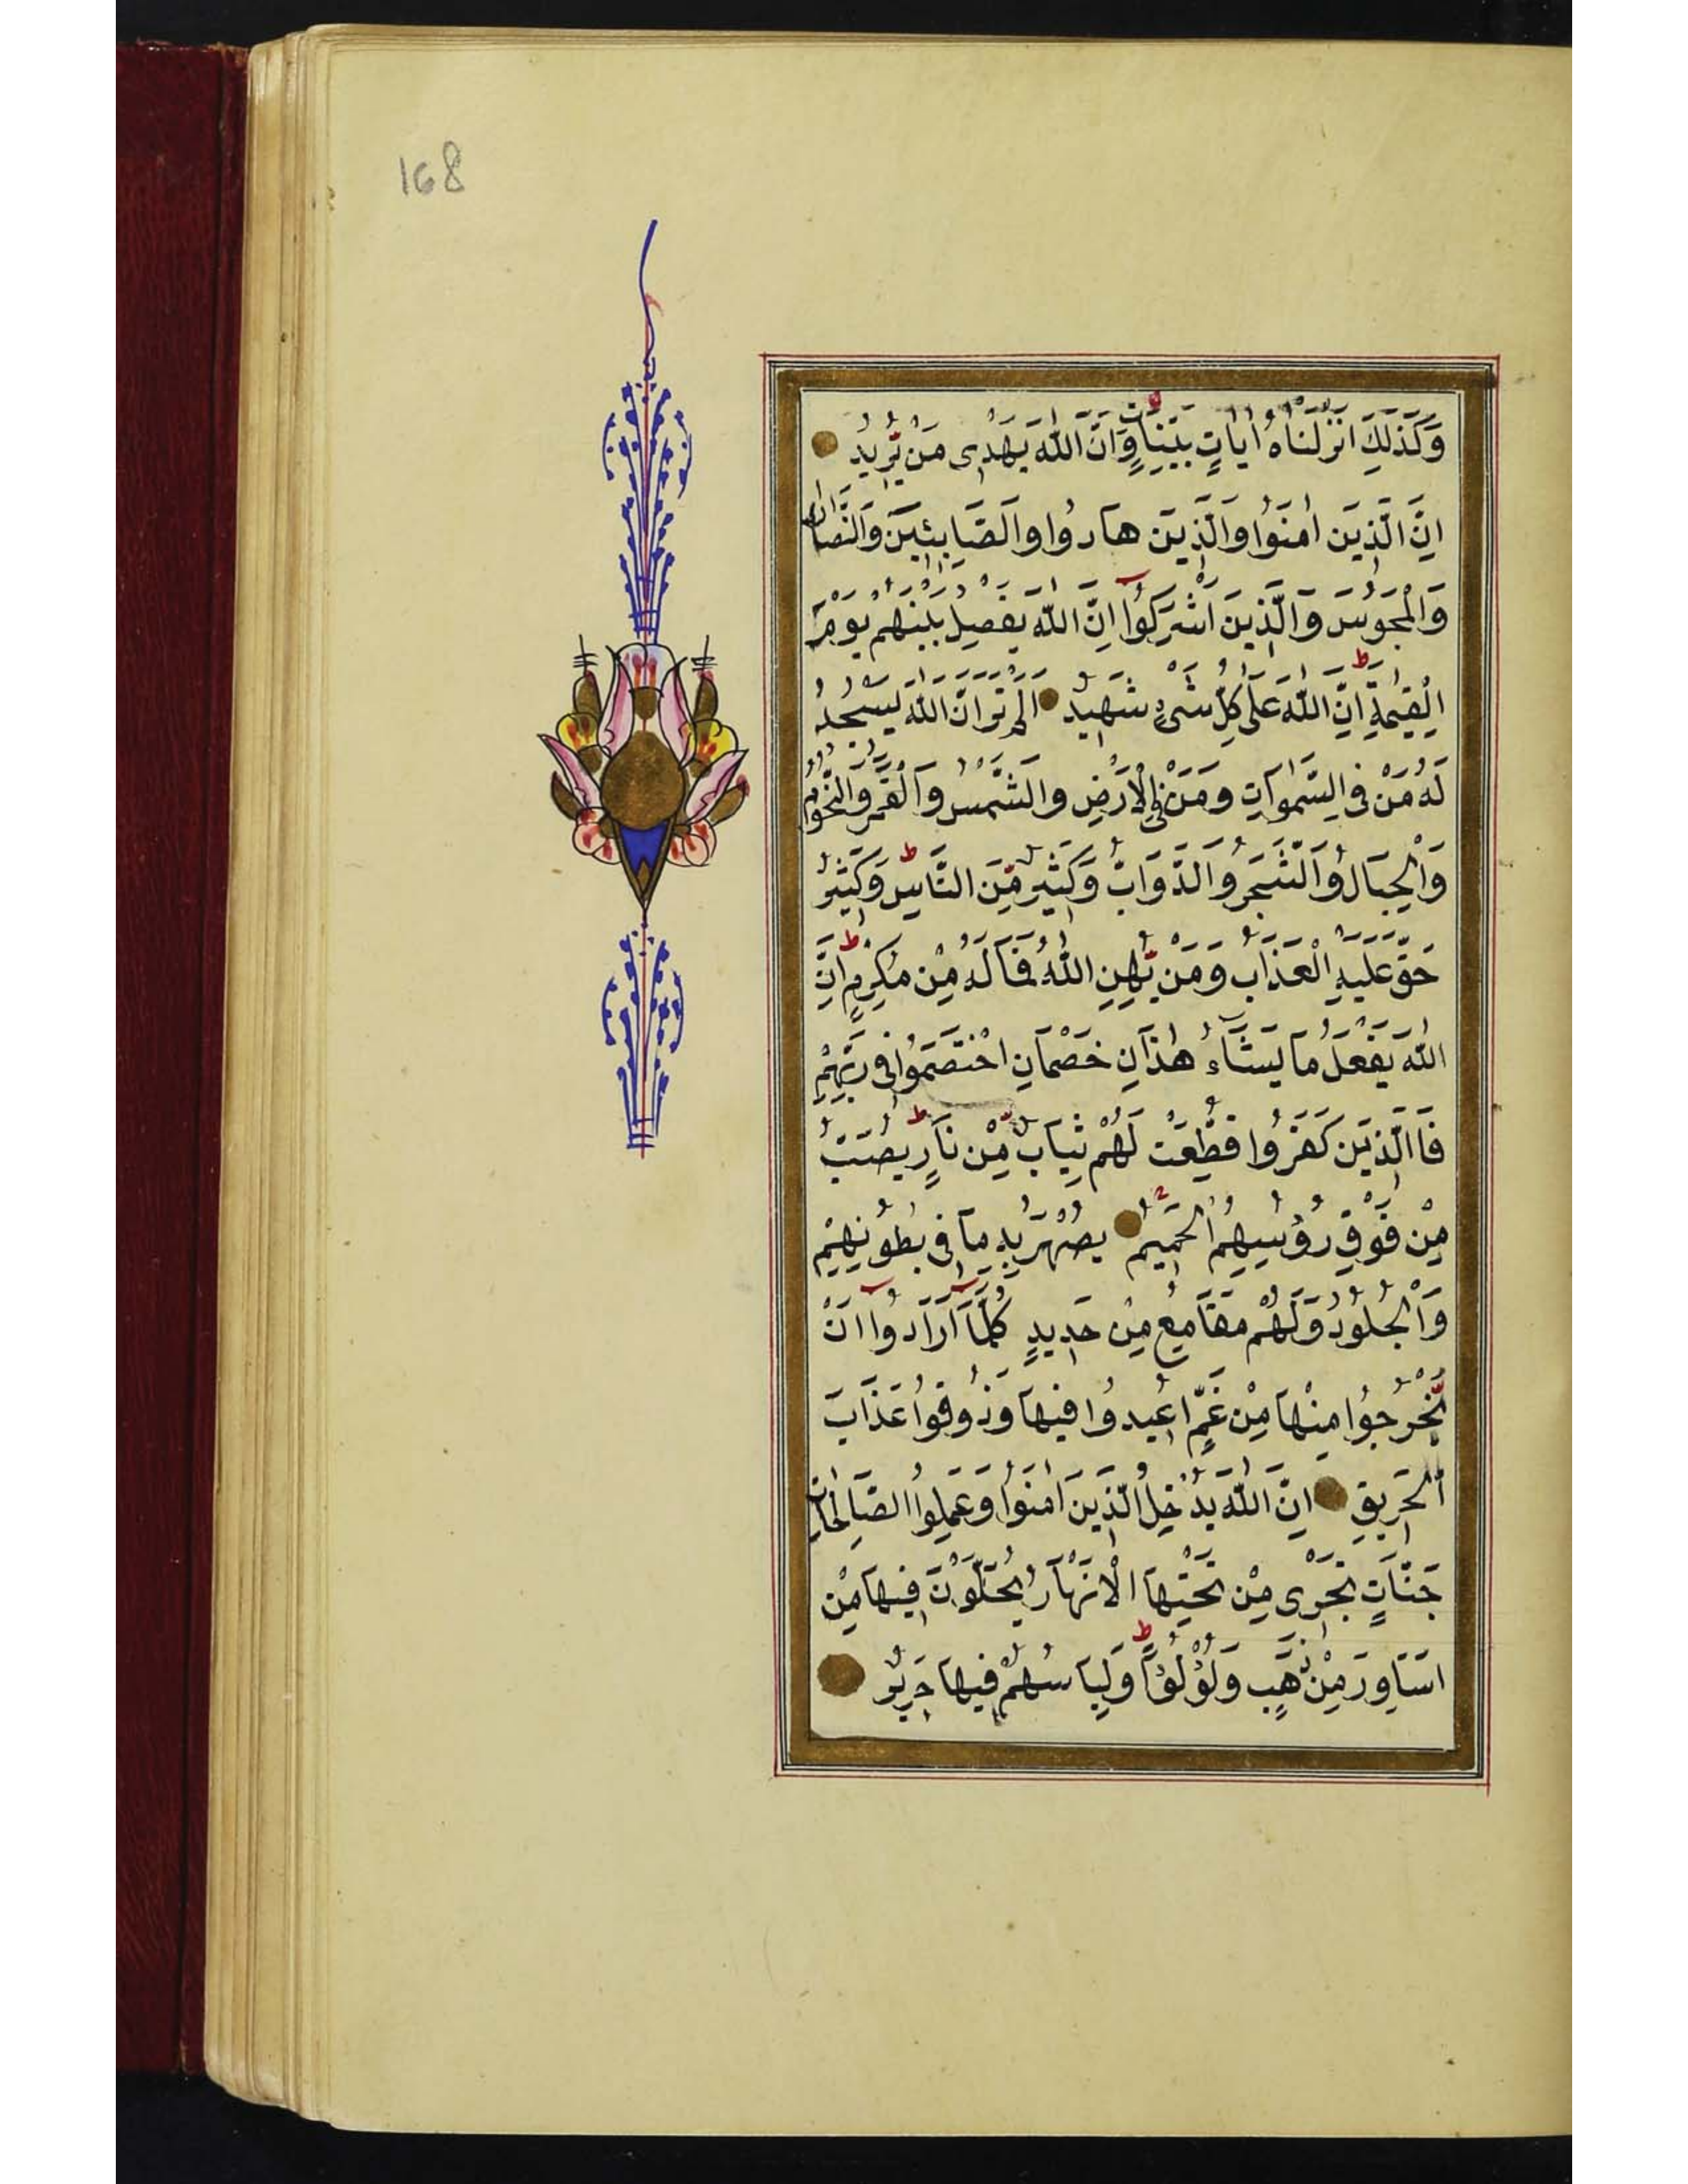 168
وَكَذٰلِكَ اَنْزَلْنَاهُ اٰيَاتٍ بَيِّنَاتٍ وَاَنَّ اللّٰهَ يَهْدِى مَنْ يُّرِيدُ
اِنَّ الَّذِينَ اٰمَنُوا وَالَّذِينَ هَادُوا وَالصَّابِئِينَ وَالنَّصَارٰى
وَالْمَجُوسَ وَالَّذِينَ اَشْرَكُوٓا اِنَّ اللّٰهَ يَفْصِلُ بَيْنَهُمْ يَوْمَ
الْقِيٰمَةِ اِنَّ اللّٰهَ عَلٰى كُلِّ شَىْءٍ شَهِيدٌ اَلَمْ تَرَ اَنَّ اللّٰهَ يَسْجُدُ
لَهُ مَنْ فِى السَّمٰوَاتِ وَمَنْ فِى الْاَرْضِ وَالشَّمْسُ وَالْقَمَرُ وَالنُّجُومُ
وَالْجِبَالُ وَالشَّجَرُ وَالدَّوَابُّ وَكَثِيرٌ مِّنَ النَّاسِ وَكَثِيرٌ
حَقَّ عَلَيْهِ الْعَذَابُ وَمَنْ يُّهِنِ اللّٰهُ فَمَا لَهُ مِنْ مُكْرِمٍ اِنَّ
اللّٰهَ يَفْعَلُ مَا يَشَٓاءُ هٰذَانِ خَصْمَانِ اخْتَصَمُوا فِى رَبِّهِمْ
فَاالَّذِينَ كَفَرُوا قُطِّعَتْ لَهُمْ ثِيَابٌ مِّنْ نَارٍ يُصَبُّ
مِنْ فَوْقِ رُؤُسِهِمُ الْحَمِيمُ يُصْهَرُ بِهِ مَا فِى بُطُونِهِمْ
وَالْجُلُودُ وَلَهُمْ مَقَامِعُ مِنْ حَدِيدٍ كُلَّمَٓا اَرَادُٓوا اَنْ
يَّخْرُجُوا مِنْهَا مِنْ غَمٍّ اُعِيدُوا فِيهَا وَذُوقُوا عَذَابَ
الْحَرِيقِ اِنَّ اللّٰهَ يُدْخِلُ الَّذِينَ اٰمَنُوا وَعَمِلُوا الصَّالِحَاتِ
جَنَّاتٍ تَجْرِى مِنْ تَحْتِهَا الْاَنْهَارُ يُحَلَّوْنَ فِيهَا مِنْ
اَسَاوِرَ مِنْ ذَهَبٍ وَلُؤْلُؤًا وَلِبَاسُهُمْ فِيهَا حَرِيرٌ